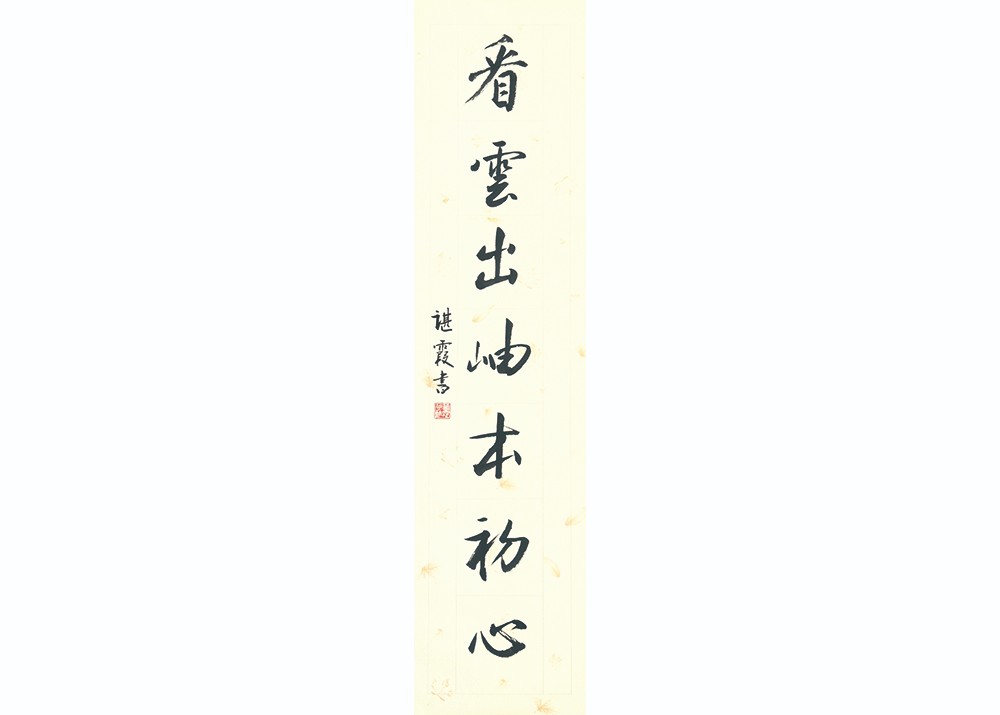 看雲出岫本初心
諶霞書